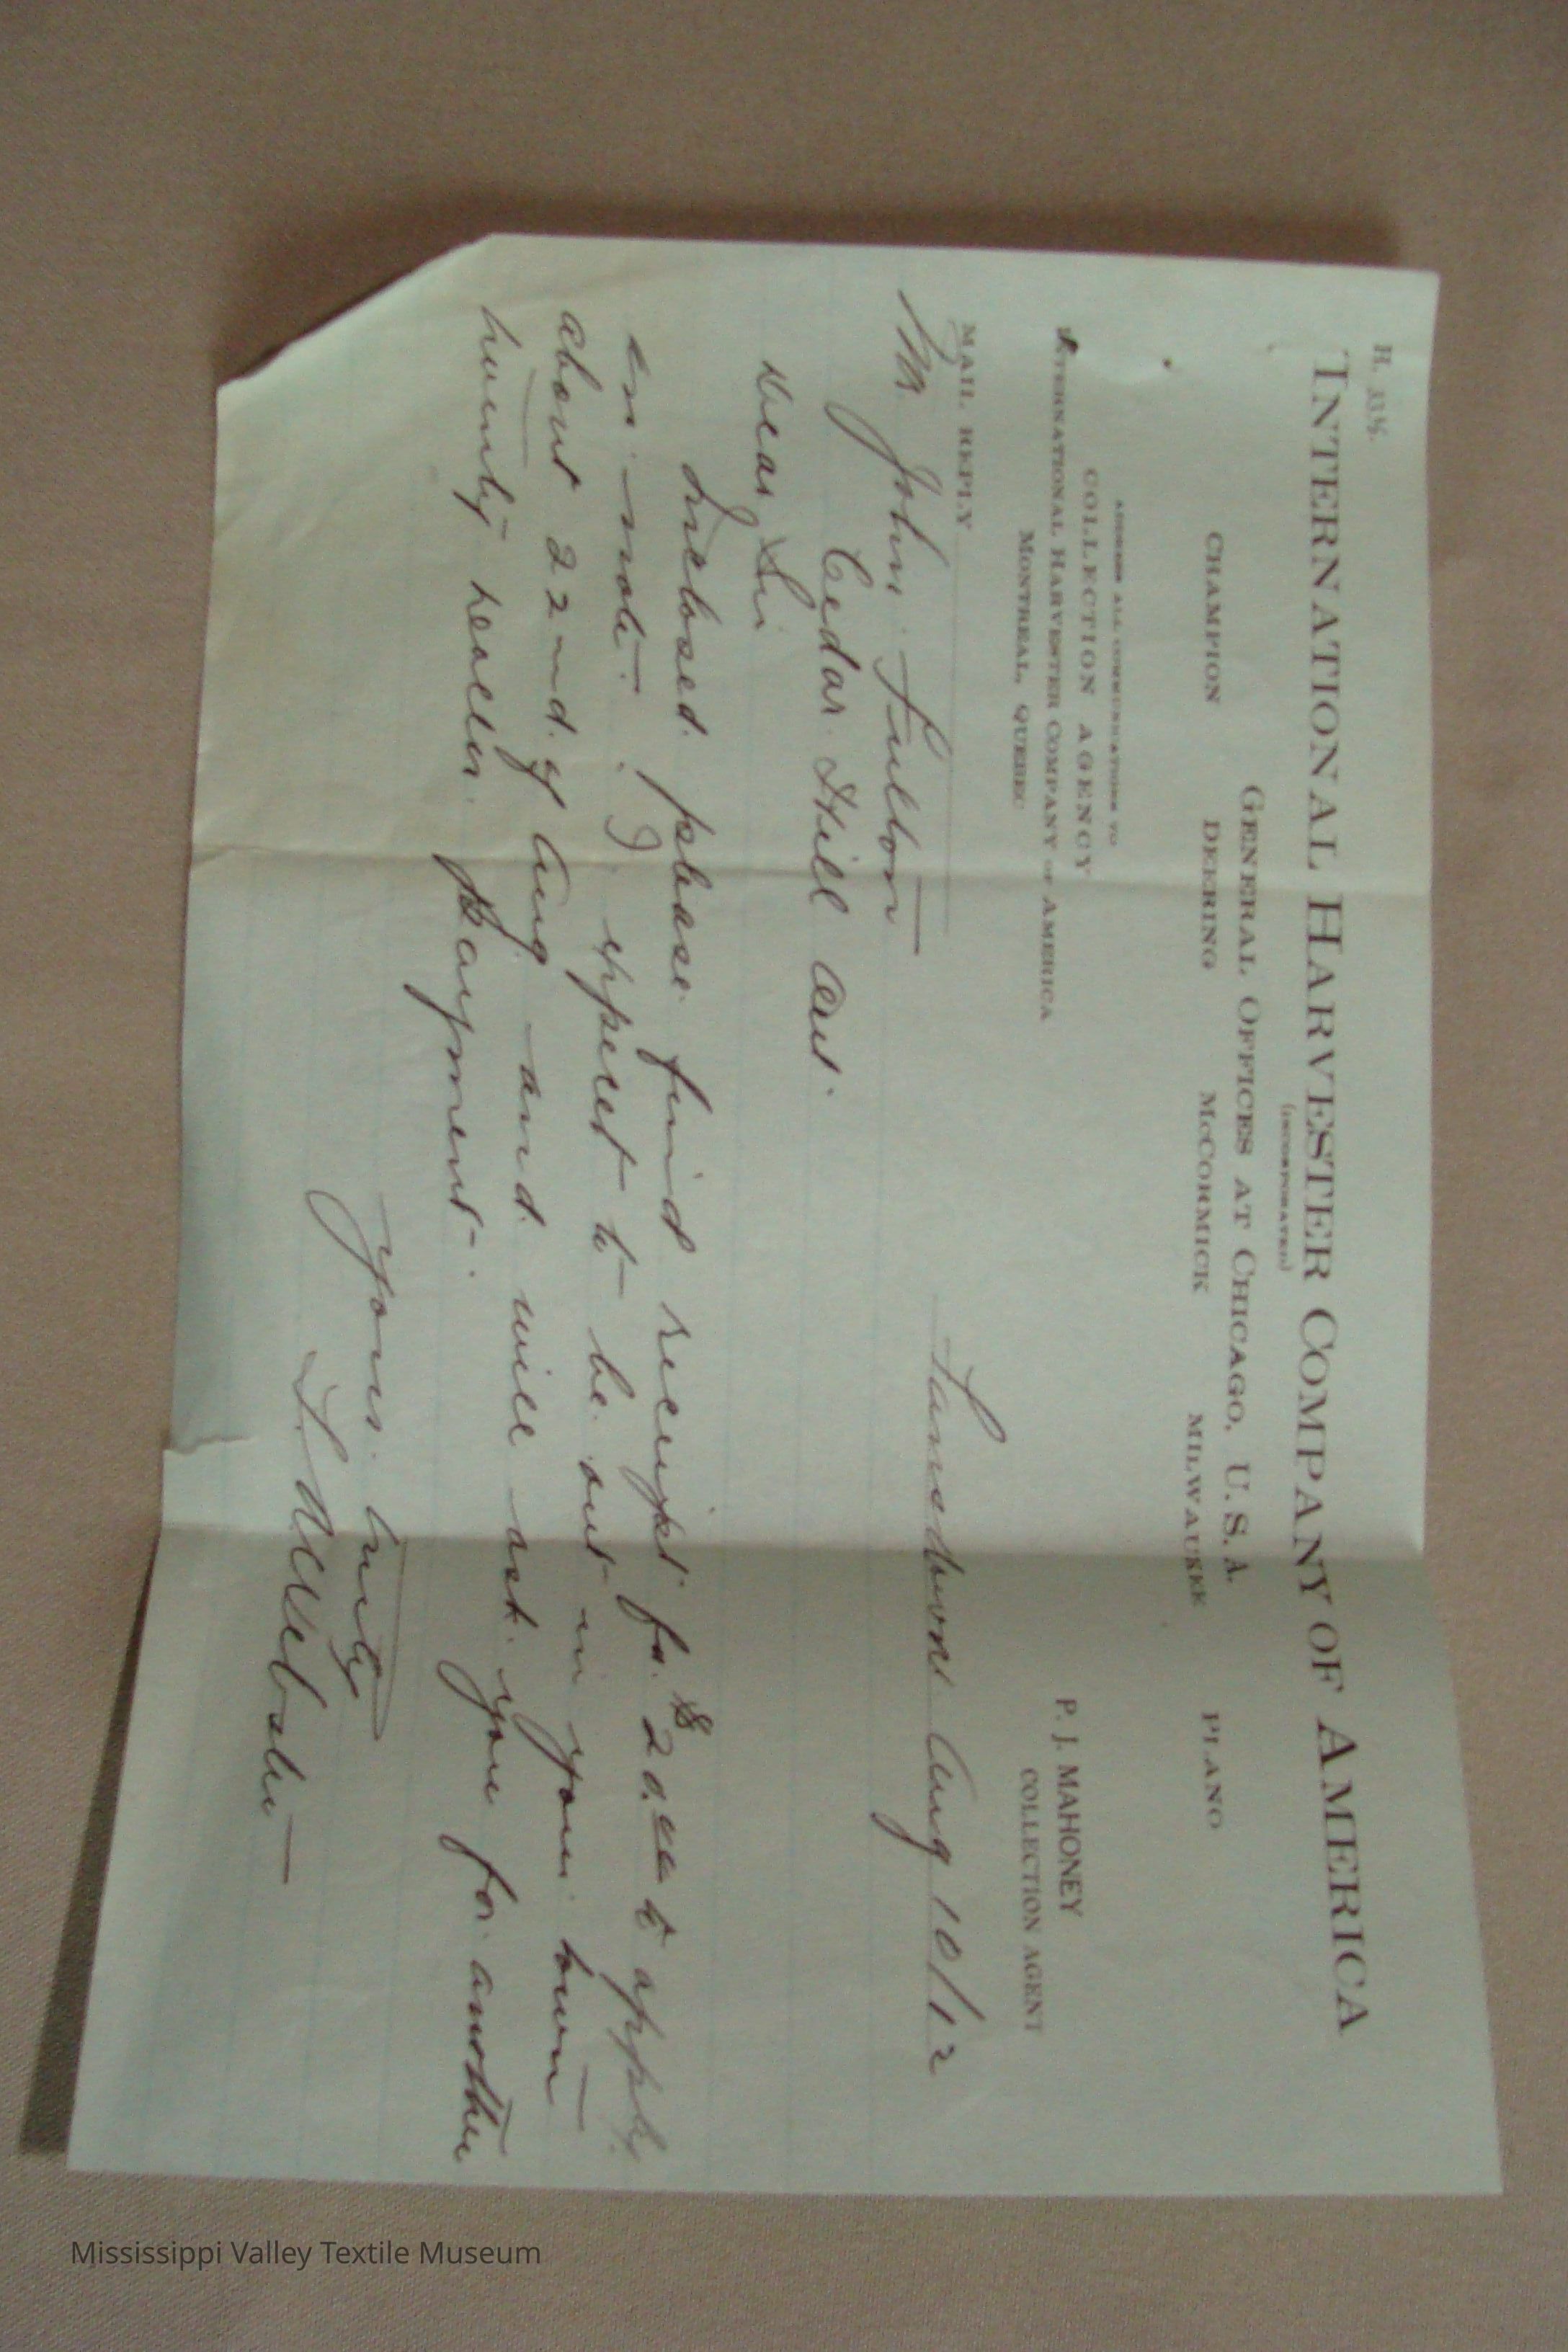 H. 335.
INTERNATIONAL HARVESTER COMPANY OF AMERICA
(INCORPORATED)
GENERAL OFFICES AT CHICAGO, U.S.A.
CHAMPION DEERING McCORMICK MILWAUKEE PLANO
ADDRESS ALL COMMUNICATIONS TO
COLLECTION AGENCY
INTERNATIONAL HARVESTER COMPANY OF AMERICA
MONTREAL, QUEBEC
P. J. MAHONEY
COLLECTION AGENT
MAIL REPLY
Lansdowne Aug 10/12
Mr John Fulton
Cedar Hill Ont.
Dear Sir
Inclosed please find receipt for $20.00 to apply
on note. I expect to be out in your town
about 22nd of Aug and will ask you for another
twenty dollar payment.
Yours truly
Webster
Mississippi Valley Textile Museum